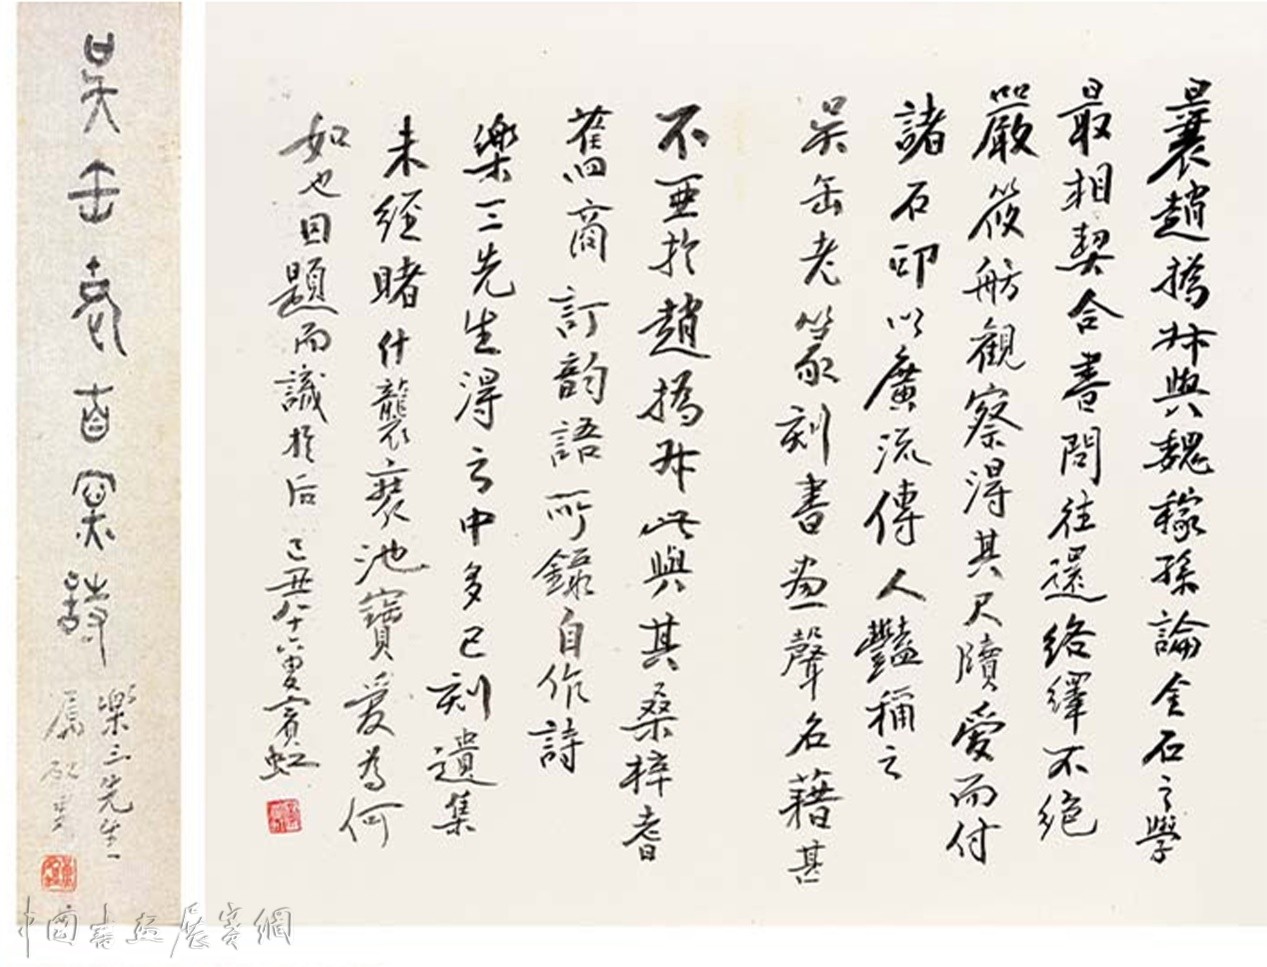 曩趙撝叔與魏稼孫論金石之學
最相契合書問往還絡繹不絕
嚴筱舫觀察得其尺牘愛而付
諸石印以廣流傳人豔稱之
吳缶老篆刻書畫聲名藉甚
不亞於趙撝叔此與其桑梓耆
舊商訂韵語所錄自作詩
樂三先生得之中多已刻遺集
未經睹什襲池寶愛為何
如也因題而識於后 己丑八十六叟賓虹
吳缶老自寫詩
樂三先生
屬
中國書畫展賽網